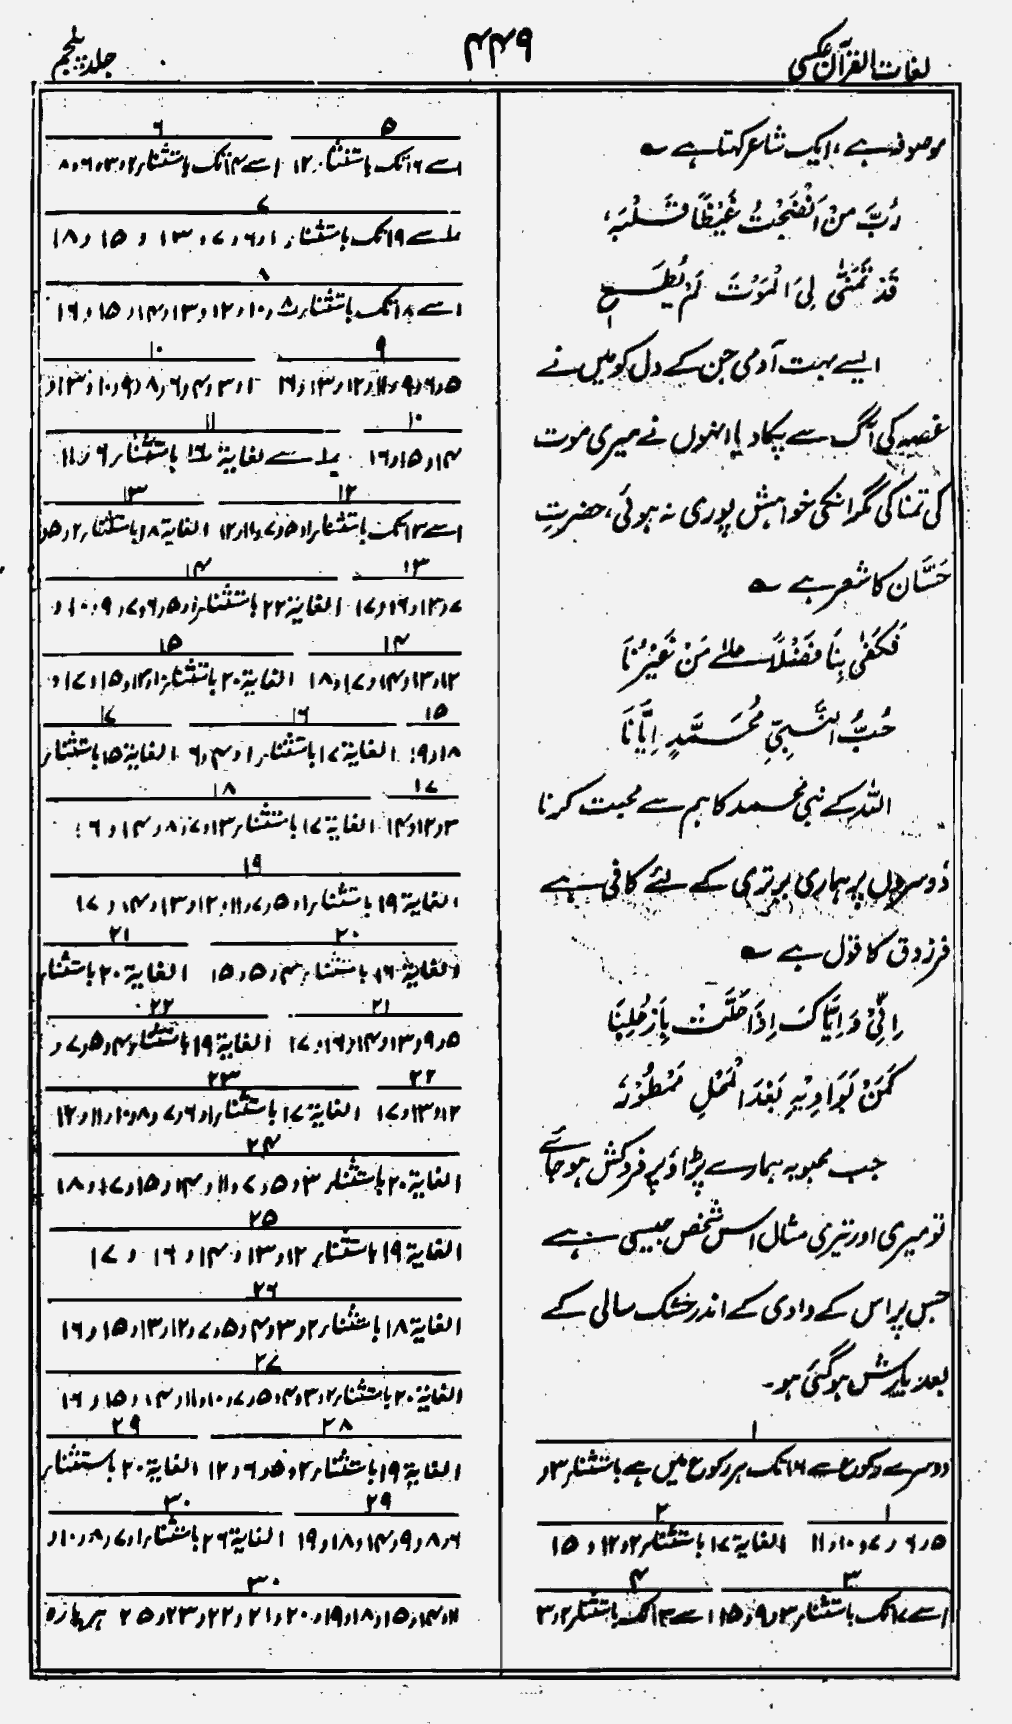 لغات القرآن عکسی
۴۴۹
جلد پنجم
موصوفہ ہے، ایک شاعر کہتا ہے
رُبَّ مَنْ اَنْضَجْتُ غَيْظًا قَلْبَهٗ
قَدْ تَمَنّٰى لِیَ الْمَوْتَ لَمْ يُطَعْ
ایسے بہت آدمی جن کے دل کو میں نے
غصہ کی آگ سے پکا دیا انہوں نے میری موت
کی تمنا کی مگر انکی خواہش پوری نہ ہوئی، حضرت
حَسَّان کا شعر ہے
فَكَفٰى بِنَا فَضْلًا عَلٰى مَنْ غَيْرُنَا
حُبُّ النَّبِيِّ مُحَمَّدٍ اِيَّانَا
اللہ کے نبی محمد کا ہم سے محبت کرنا
دوسروں پر ہماری برتری کے لئے کافی ہے
فرزدق کا قول ہے
اِنِّیْ وَ اِيَّاكَ اِذَا حَلَّتْ بِاَرْحُلِنَا
كَمَنْ بِوَادِيْهِ بَعْدَ الْمَحْلِ مَمْطُوْرٌ
جب محبوبہ ہمارے پڑاؤ پر فروکش ہو جائے
تو میری اور تیری مثال اس شخص جیسی ہے
جس پر اس کے وادی کے اندر خشک سالی کے
بعد بارش ہو گئی ہو۔
۱
دوسرے رکوع سے ۱۶ تک ہر رکوع میں ہے باستثنار ۳ و
۱ ۲
۵ و ۶ و ۷ و ۱۰ و ۱۱ الغایۃ ۱۷ باستثنار ۲ و ۱۲ و ۱۵
۳ ۴
اسے ۱۷ تک باستثنار ۳ و ۹ و ۱۵ اسے ۱۴ تک باستثنار ۲ و ۳
۵ ۶
اسے ۱۶ تک باستثنار ۱۲ اسے ۱۴ تک باستثنار ۲ و ۳ و ۶ و ۸
۷
۱ سے ۱۹ تک باستثنار ۱ و ۶ و ۷ و ۱۳ و ۱۵ و ۱۸
۸
اسے ۱۸ تک باستثنار ۸ و ۱۰ و ۱۲ و ۱۳ و ۱۴ و ۱۵ و ۱۶
۹ ۱۰
۵ و ۶ و ۹ و ۱۱ و ۱۲ و ۱۳ و ۱۶ ۱ و ۳ و ۴ و ۶ و ۸ و ۹ و ۱۰ و ۱۳ و
۱۰ ۱۱
۱۴ و ۱۵ و ۱۶ ۱ سے لغایۃ ۱۶ باستثنار ۶ و ۱۱
۱۲ ۱۳
اسے ۱۲ تک باستثنار ۱ و ۵ و ۷ و ۱۱ و ۱۲ الغایۃ ۱۸ باستثنار ۲ و ۵ و
۱۳ ۱۴
۷ و ۱۲ و ۱۶ و ۱۷ الغایۃ ۲۲ باستثنار ۱ و ۵ و ۶ و ۷ و ۹ و ۱۰ و
۱۴ ۱۵
۱۲ و ۱۳ و ۱۴ و ۱۷ و ۱۸ الغایۃ ۲۰ باستثنار ۱ و ۱۲ و ۱۵ و ۱۷ و
۱۵ ۱۶ ۱۷
۱۸ و ۱۹ الغایۃ ۱۷ باستثنار ۱ و ۴ و ۶ الغایۃ ۱۵ باستثنار
۱۷ ۱۸
۳ و ۱۲ و ۱۴ الغایۃ ۱۷ باستثنار ۳ و ۷ و ۸ و ۱۴ و ۶
۱۹
الغایۃ ۱۹ باستثنار ۱ و ۵ و ۷ و ۱۱ و ۱۲ و ۱۳ و ۱۴ و ۱۷
۲۰ ۲۱
الغایۃ ۱۶ باستثنار ۴ و ۵ و ۱۵ الغایۃ ۲۰ باستثنار
۲۱ ۲۲
۵ و ۹ و ۱۳ و ۱۴ و ۱۶ و ۱۷ الغایۃ ۱۹ باستثنار ۴ و ۵ و ۷ و
۲۲ ۲۳
۱۲ و ۱۳ و ۱۷ الغایۃ ۱۷ باستثنار ۱ و ۶ و ۷ و ۸ و ۱۰ و ۱۱ و ۱۲
۲۴
الغایۃ ۲۰ باستثنار ۳ و ۵ و ۷ و ۱۱ و ۱۴ و ۱۵ و ۱۷ و ۱۸
۲۵
الغایۃ ۱۹ باستثنار ۱۲ و ۱۳ و ۱۴ و ۱۶ و ۱۷
۲۶
الغایۃ ۱۸ باستثنار ۲ و ۳ و ۴ و ۵ و ۷ و ۱۲ و ۱۳ و ۱۵ و ۱۶
۲۷
الغایۃ ۲۰ باستثنار ۲ و ۳ و ۴ و ۵ و ۷ و ۱۰ و ۱۱ و ۱۴ و ۱۵ و ۱۶
۲۸ ۲۹
الغایۃ ۱۹ باستثنار ۲ و ۵ و ۶ و ۱۲ الغایۃ ۲۰ باستثنار
۲۹ ۳۰
۶ و ۸ و ۹ و ۱۴ و ۱۸ و ۱۹ الغایۃ ۲۶ باستثنار ۱ و ۷ و ۸ و ۱۰ و
۳۰
۱۱ و ۱۴ و ۱۵ و ۱۸ و ۱۹ و ۲۰ و ۲۱ و ۲۲ و ۲۳ و ۲۵ ہر پارہ